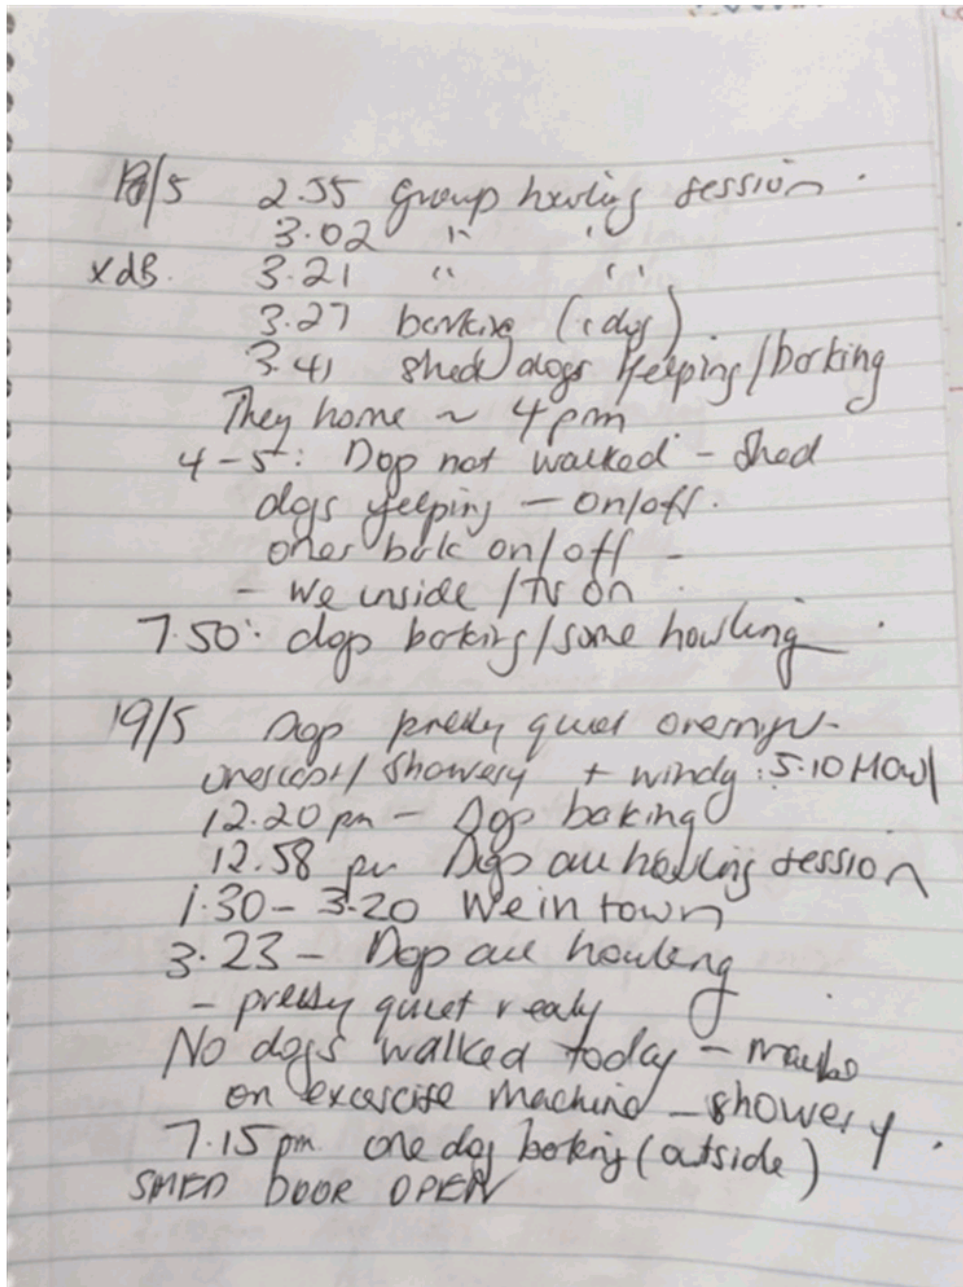 18/5 2.55 group howling session.
3.02 " "
x dB. 3.21 " "
3.27 barking (1 dog)
3.41 shed dogs yelping/barking
They home ~ 4pm
4-5: Dogs not walked - shed
dogs yelping - on/off.
ones bark on/off -
- We inside / TV on
7.50: dogs barking/some howling
19/5 Dogs pretty quiet overnight
overcast/showery + windy: 5.10 HOWL
12.20 pm - Dogs baking
12.58 pm Dogs all howling session
1.30 - 3.20 We in town
3.23 - Dogs all howling
- pretty quiet realy
No dogs walked today - maybe
on excercise machine - showery.
7.15 pm one dog barking (outside)
SHED DOOR OPEN